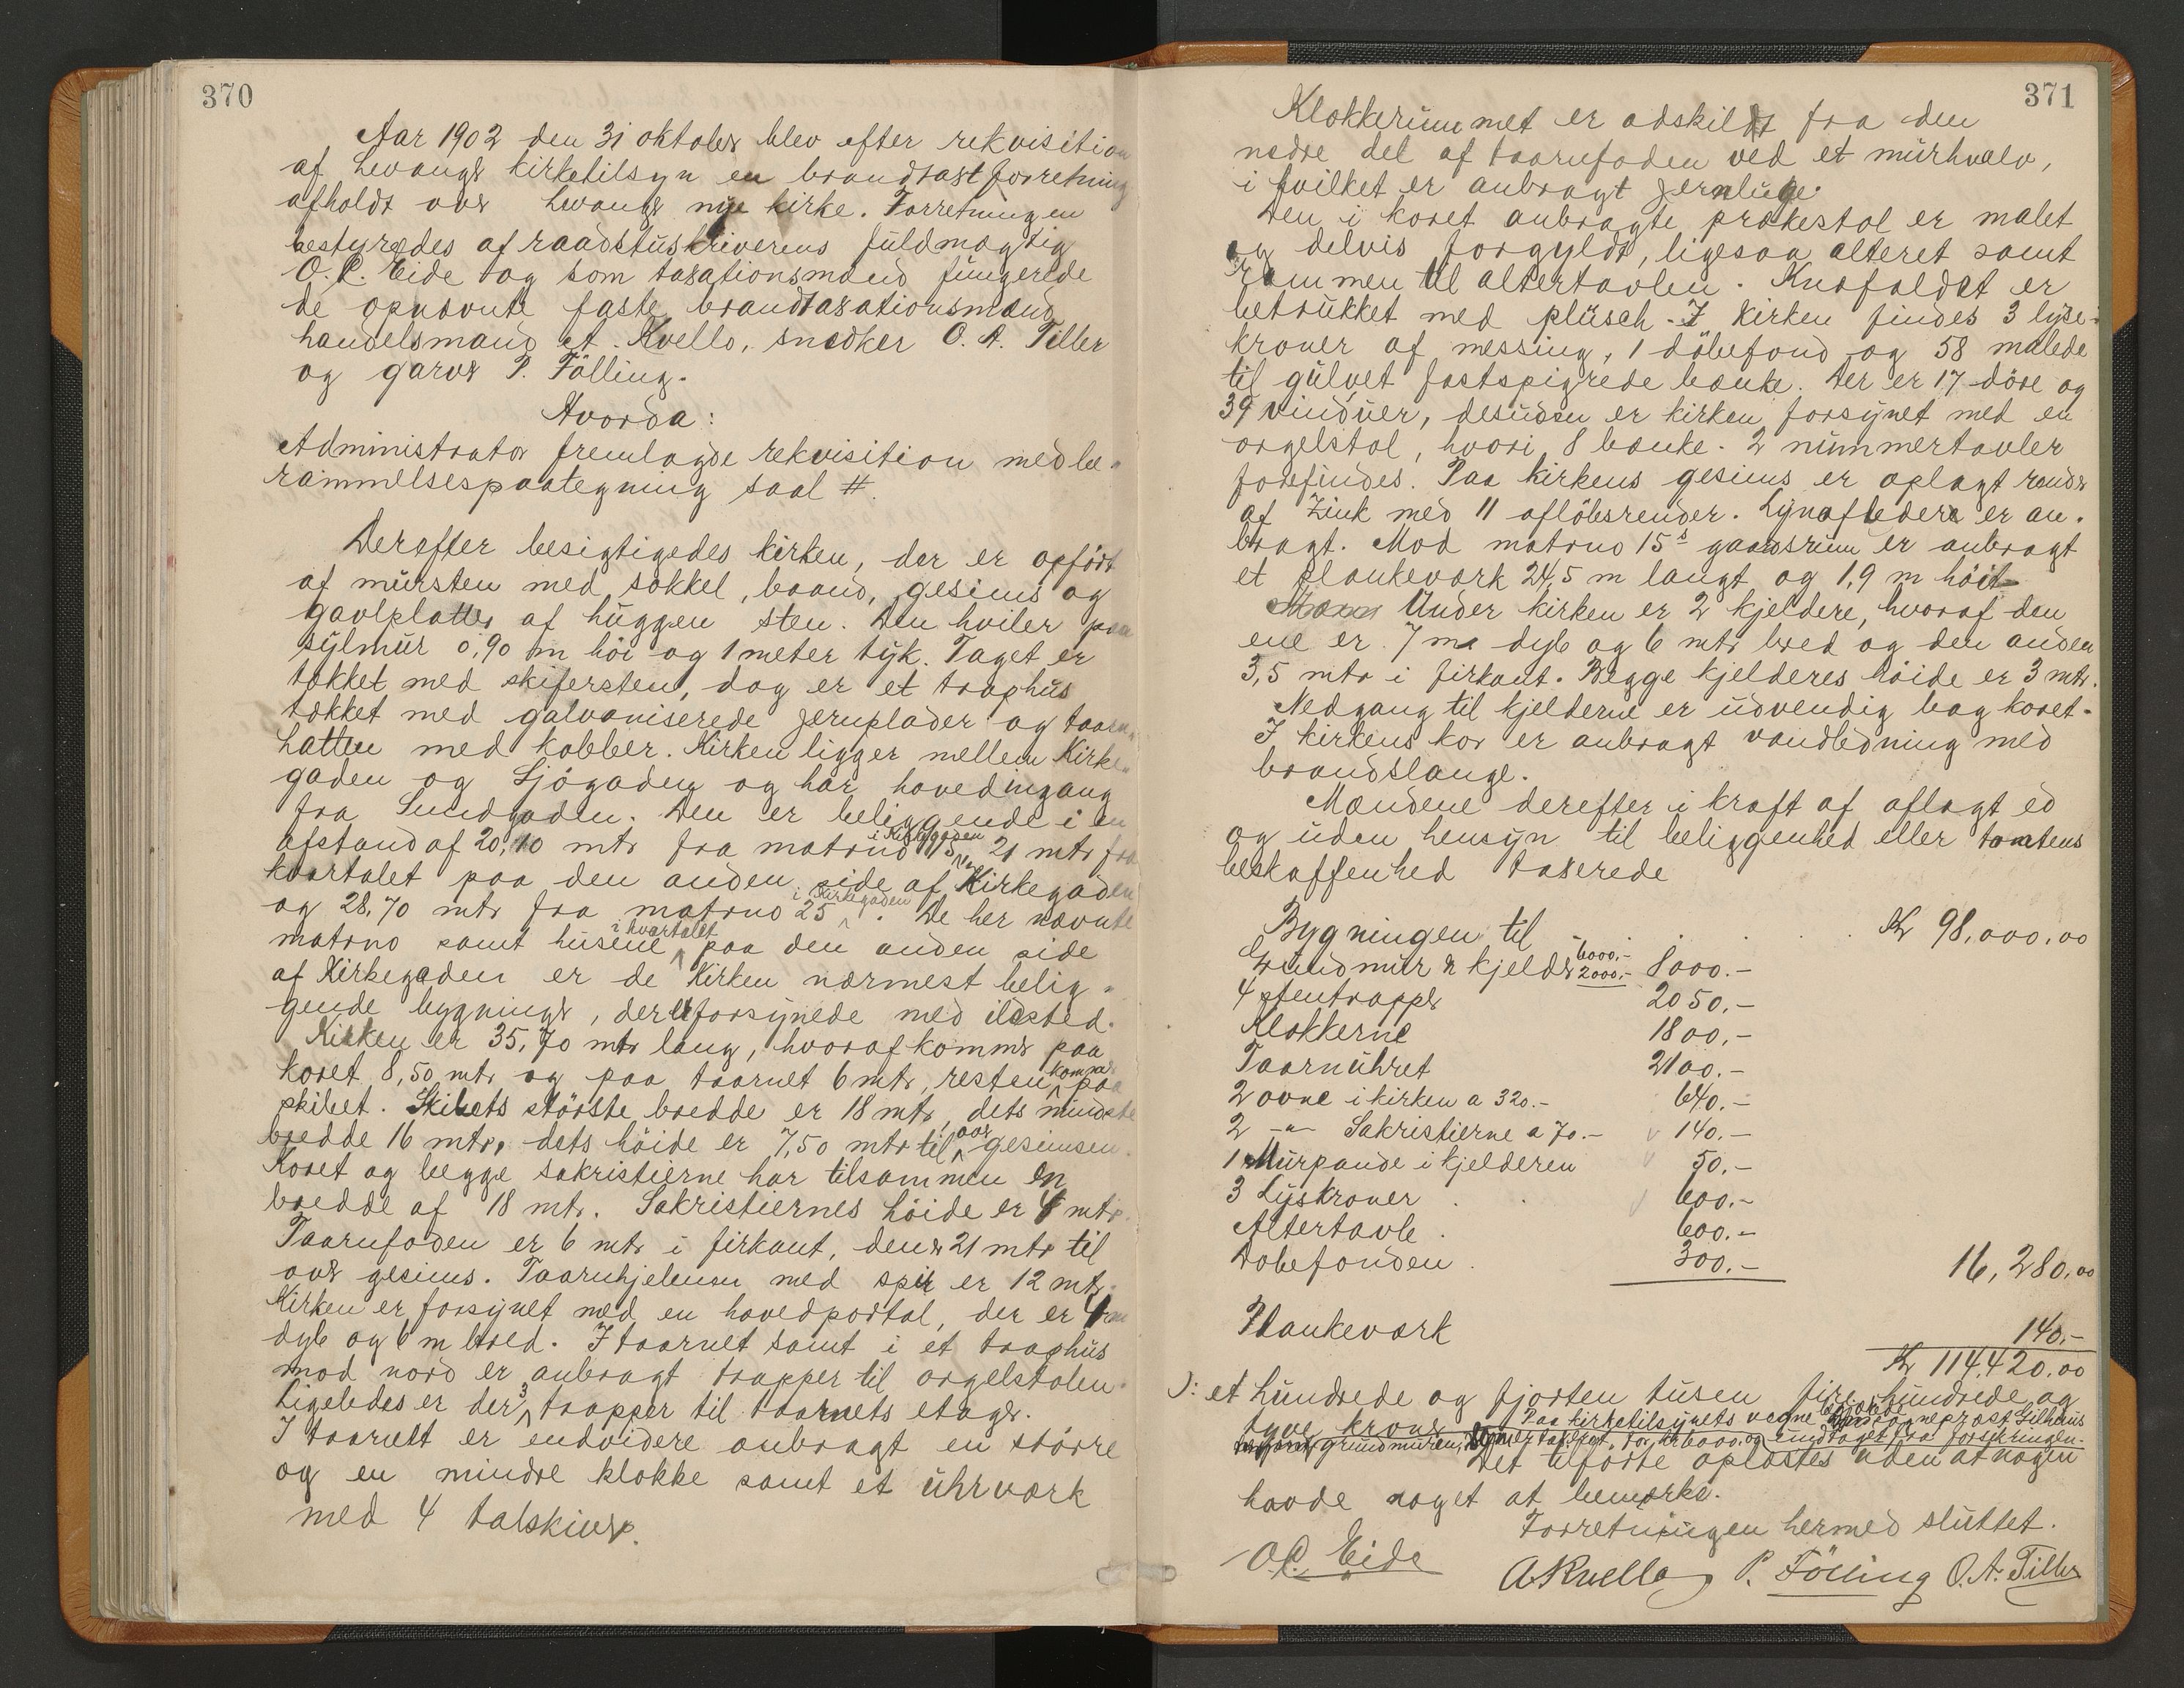 370
Aar 1902 den 31 oktober blev efter rekvisition
af Levanger kirketilsyn en brandtaxtforretning
afholdt over Levanger nye kirke. Forretningen
bestyredes af raadstuskriverens fuldmægtig
O. P. Eide og som taxationsmænd fungerede
de opnævnte faste brandtaxationsmænd
handelsmand A. Kvello, snedker O. A. Tiller
og garver P. Fölling.
Hvorda:
Administrator fremlagde rekvisition med be-
rammelsespaategning saal #.
Derefter besigtigedes kirken, der er opført
af mursten med sokkel, baand, gesims og
gavlplatter af huggen sten. Den hviler paa
sylmur 0,90 m höi og 1 meter tyk. Taget er
tækket med skifersten, dog er et traphus
tækket med galvaniserede jernplader og taarn-
hatten med kobber. Kirken ligger mellem Kirke-
gaden og Sjögaden og har hovedingang
fra Sundgaden. Den er beliggende i en
afstand af 20,10 mtr fra matrno 15 i Kirkegaden, 21 mtr fra
kvartalet paa den anden side af Kirkegaden
og 28,70 mtr fra matrno 25 i Kirkegaden. De her nævnte
matrno samt husene i kvartalet paa den anden side
af Kirkegaden er de Kirken nærmest belig-
gende bygninger, der er forsynede med ildsted.
Kirken er 35,70 mtr lang, hvoraf kommer paa
koret 8,50 mtr og paa taarnet 6 mtr, resten kommer paa
skibet. Skibets störste bredde er 18 mtr, dets mindste
bredde 16 mtr, dets höide er 7,50 mtr til over gesimsen.
Koret og begge sakristierne har tilsammen en
bredde af 18 mtr. Sakristiernes höide er 4 mtr.
Taarnfoden er 6 mtr i firkant, den er 21 mtr til
over gesims. Taarnhjelmen med spir er 12 mtr.
Kirken er forsynet med en hovedportal, der er 4 m
dyb og 6 m bred. I taarnet samt i et traphus
mod nord er anbragt trapper til orgelstolen.
Ligeledes er der 3 trapper til taarnets etager.
I taarnet er endvidere anbragt en större
og en mindre klokke samt et uhrværk
med 4 talskiver.
371
Klokkerummet er adskildt fra den
nedre del af taarnfoden ved et murhvælv,
i hvilket er anbragt jernluge.
Den i koret anbragte prækestol er malet
og delvis forgyldt, ligesaa alteret samt
rammen til altertavlen. Knæfaldet er
betrukket med plüsch. I Kirken findes 3 lyse-
kroner af messing, 1 döbefond og 58 malede
til gulvet fastspigrede bænke. Der er 17 döre og
39 vinduer, desuden er kirken forsynet med en
orgelstol, hvori 8 bænke. 2 nummertavler
forefindes. Paa kirkens gesims er oplagt render
af Zink med 11 aflöbsrender. Lynafledere er an-
bragt. Mod matrno 15s gaardsrum er anbragt
et plankeværk 24,5 m langt og 1,9 m höit
Under kirken er 2 kjeldere, hvoraf den
ene er 7 m dyb og 6 mtr bred og den anden
3,5 mtr i firkant. Begge kjelderes höide er 3 mtr.
Nedgang til kjelderne er udvendig bag koret.
I kirkens kor er anbragt vandledning med
brandslange.
Mændene derefter i kraft af aflagt ed
og uden hensyn til beliggenhed eller tomtens
beskaffenhed taxerede
Bygningen til . . . . Kr 98,000,00
Grundmur 6000.- & kjelder 2000.- 8000.-
4 stentrapper 2050.-
Klokkerne 1800.-
Taarnuhret 2100.-
2 ovne i kirken a 320.- 640.-
2 -"- Sakristierne a 70.- 140.-
1 Murpande i kjelderen 50.-
3 Lyskroner . . 600.-
Altertavle . 600.-
Døbefonden . 300.- 16,280.00
Plankeværk 140.-
Kr 114,420.00
ɔ: et hundrede og fjorten tusen fire hundrede og
tyve kroner Paa kirketilsynets vegne sogneprost Gilhuus
grundmuren, taxeret for kr 6000. og undtaget fra forsikringen.
Det tilförte oplæstes uden at nogen
havde noget at bemærke.
Forretningen hermed sluttet.
O. P. Eide A Kvello P. Fölling O. A. Tiller